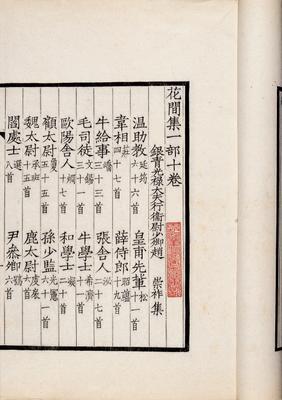 花間集一部十卷
銀青光祿大夫行衛尉少卿趙 崇祚集
溫助教廷筠六十六首 皇甫先輩松十一首
韋相莊四十七首 薛侍郎昭蘊十九首
牛給事嶠三十三首 張舍人泌二十七首
毛司徒文錫三十一首 牛學士希濟十一首
歐陽舍人炯十七首 和學士凝二十首
顧太尉敻五十五首 孫少監光憲六十一首
魏太尉承班十五首 鹿太尉虔扆六首
閻處士選八首 尹參卿鶚六首